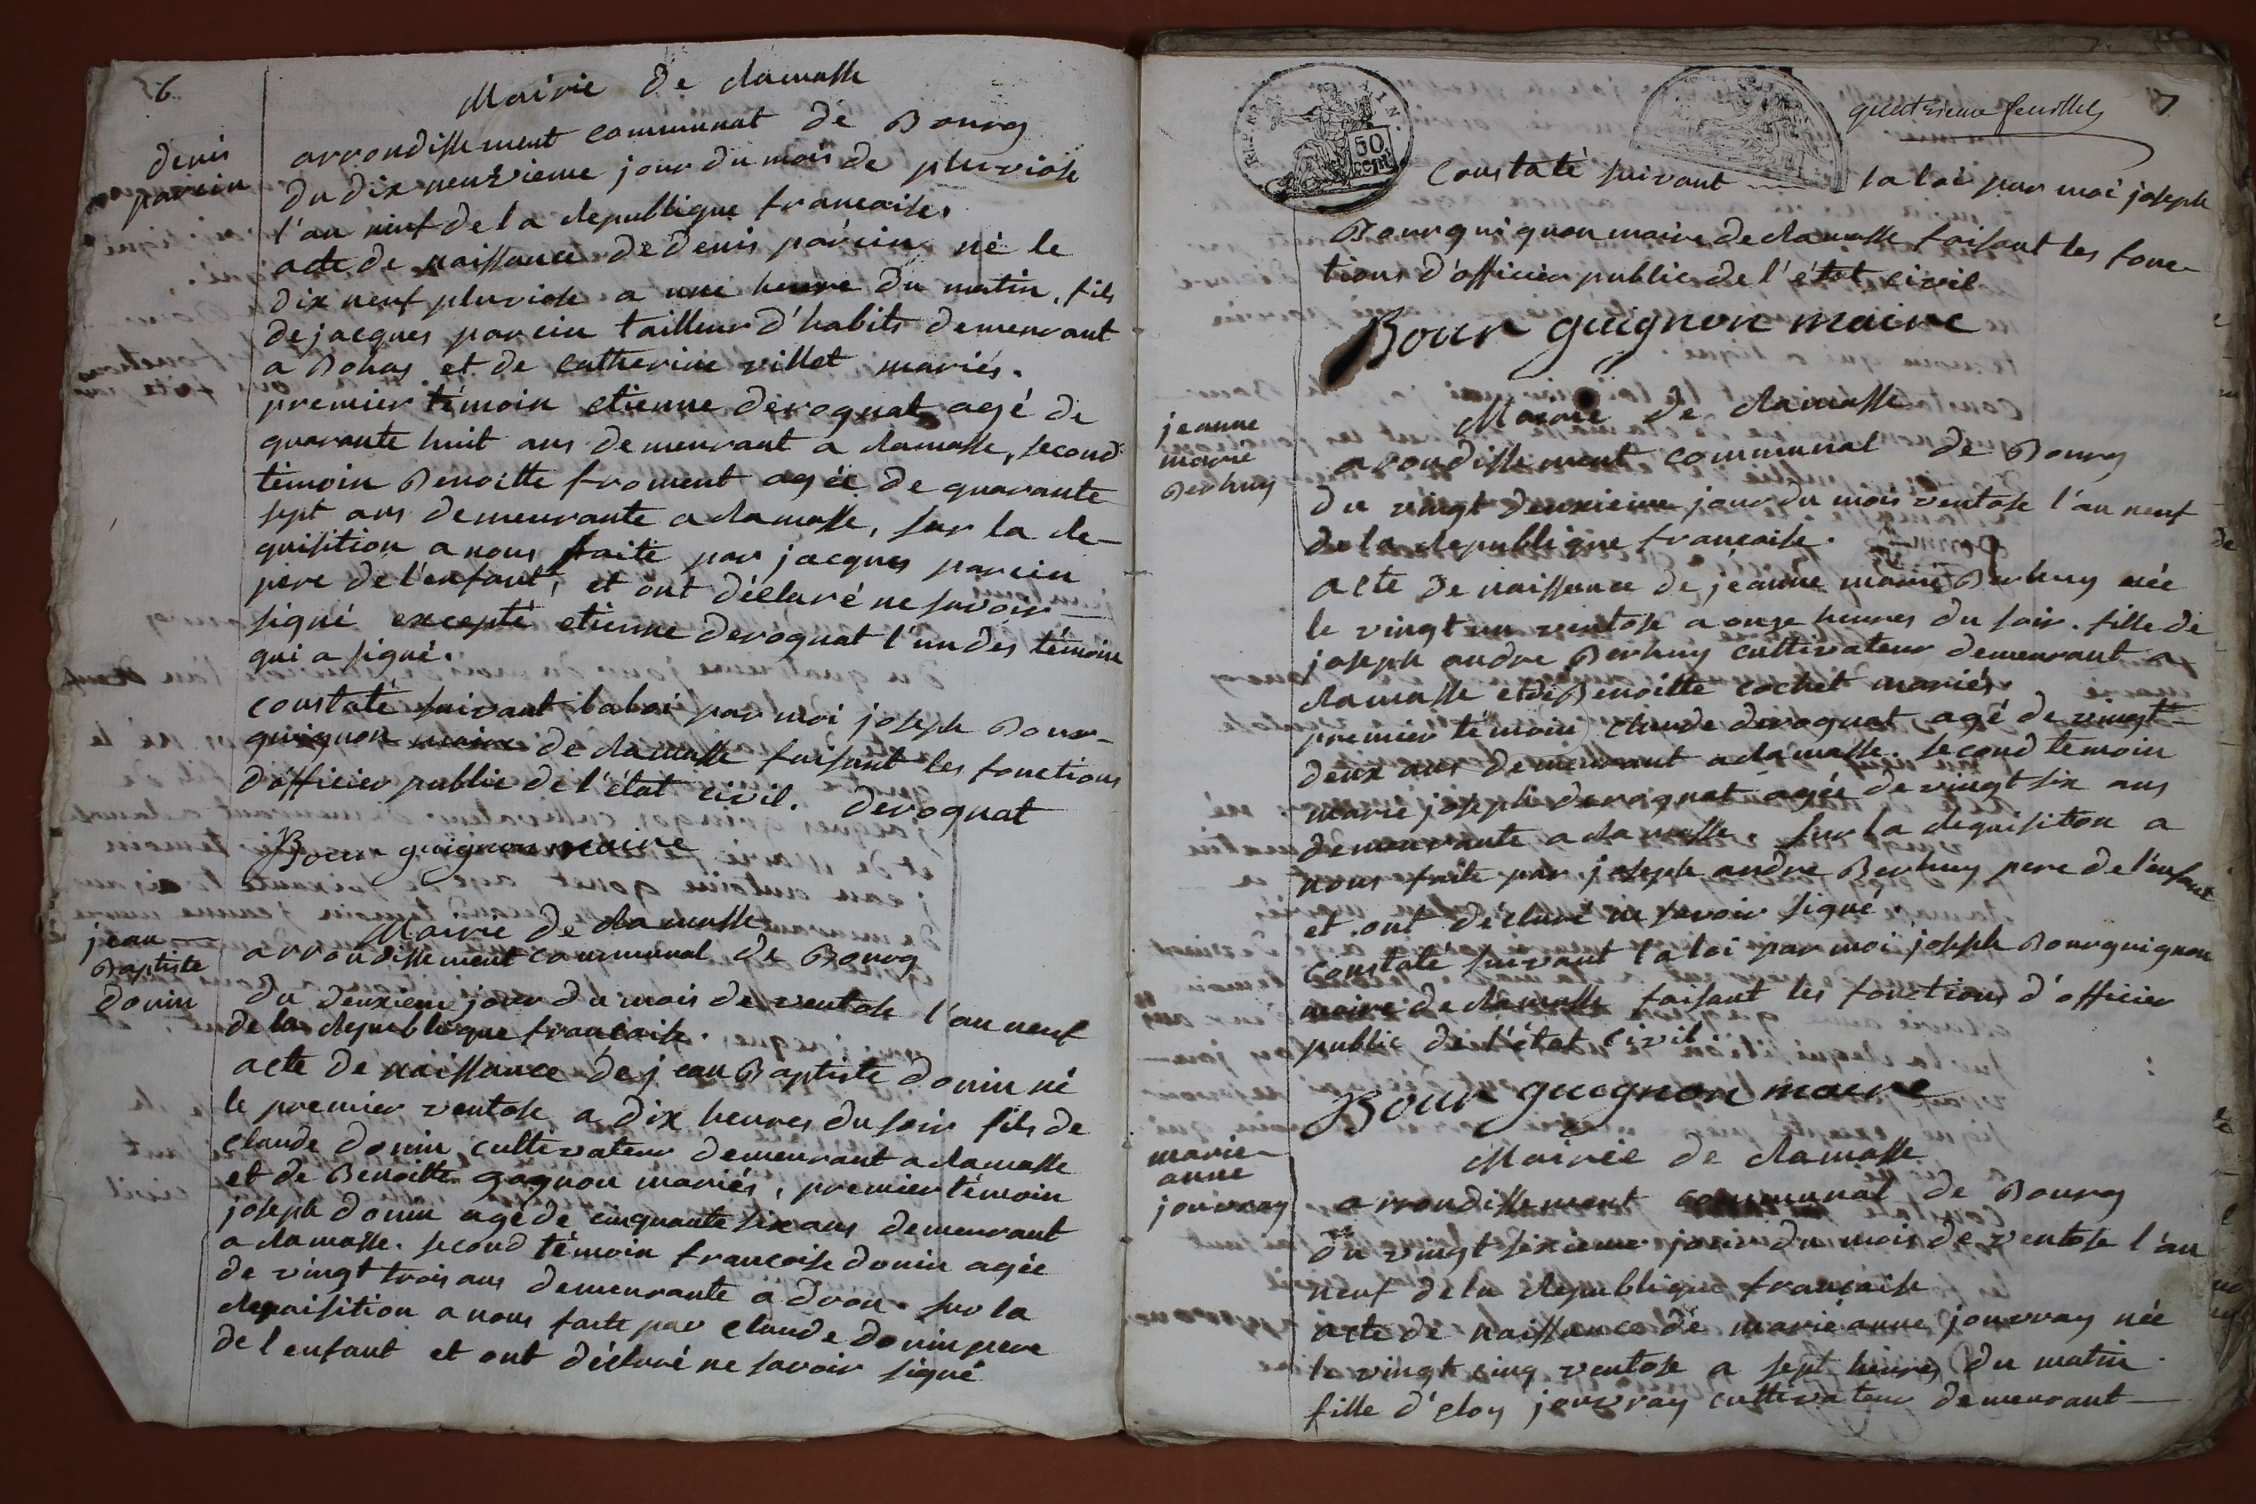 6
Mairie de Ramasse
denis
parcin
arrondissement communal de Bourg
du dix neuvieme jour du mois de pluviose
l'an neuf de la Republique francaise.
acte de naissance de denis parcin né le
dix neuf pluviose a une heure du matin, fils
de jacques parcin tailleur d'habits demeurant
a Bohas et de catherine villet mariés.
premier témoin etienne deroquat agé de
quarante huit ans demeurant a Ramasse, second
témoin Benoitte froment agée de quarante
sept ans demeurante a Ramasse, sur la Re-
quisition a nous faite par jacques parcin
pere de l'enfant, et ont déclaré ne savoir
signé excepté etienne deroquat l'un des témoin
qui a signé.
constaté suivant la loi par moi joseph Bour-
guignon maire de Ramasse faisant les fonctions
d'officier public de l'état civil. deroquat
Bourguignon maire
Mairie de Ramasse
jean
Baptiste
donin
arrondissement communal de Bourg
du deuxieme jour du mois de ventose l'an neuf
de la Republique francaise.
acte de naissance de jean Baptiste donin né
le premier ventose a dix heures du soir fils de
claude donin cultivateur demeurant a Ramasse
et de Benoitte gagnon mariés, premier témoin
joseph donin agé de cinquante six ans demeurant
a Ramasse. second témoin francoise donin agée
de vingt trois ans demeurante a drom. sur la
Requisition a nous faite par claude donin pere
de l'enfant et ont déclaré ne savoir signé
7
50
cent
quatrieme feuillet
constaté suivant la loi par moi joseph
Bourguignon maire de Ramasse faisant les fonc-
tions d'officier public de l'état civil
Bourguignon maire
Mairie de Ramasse
jeanne
marie
Berhuy
arrondissement communal de Bourg
du vingt deuxieme jour du mois ventose l'an neuf
de la Republique francaise.
acte de naissance de jeanne marie Berhuy née
le vingt un ventose a onze heures du soir. fille de
joseph andre Berhuy cultivateur demeurant a
Ramasse et de Benoitte cochet mariés
premier témoin claude deroquat agé de vingt
deux ans demeurant a Ramasse. second temoin
marie joseph deroquat agée de vingt six ans
demeurante a Ramasse. sur la Requisition a
nous faite par joseph andre Berhuy pere de l'enfant
et ont déclaré ne savoir signé.
constaté suivant la loi par moi joseph Bourguignon
maire de Ramasse faisant les fonctions d'officier
public de l'état civil.
Bourguignon maire
Mairie de Ramasse
marie
anne
jouvray
arrondissement communal de Bourg
du vingt sixieme jour du mois de ventose l'an
neuf de la Republique francaise
acte de naissance de marie anne jouvray née
le vingt cinq ventose a sept heures du matin.
fille d'eloy jouvray cultivateur demeurant